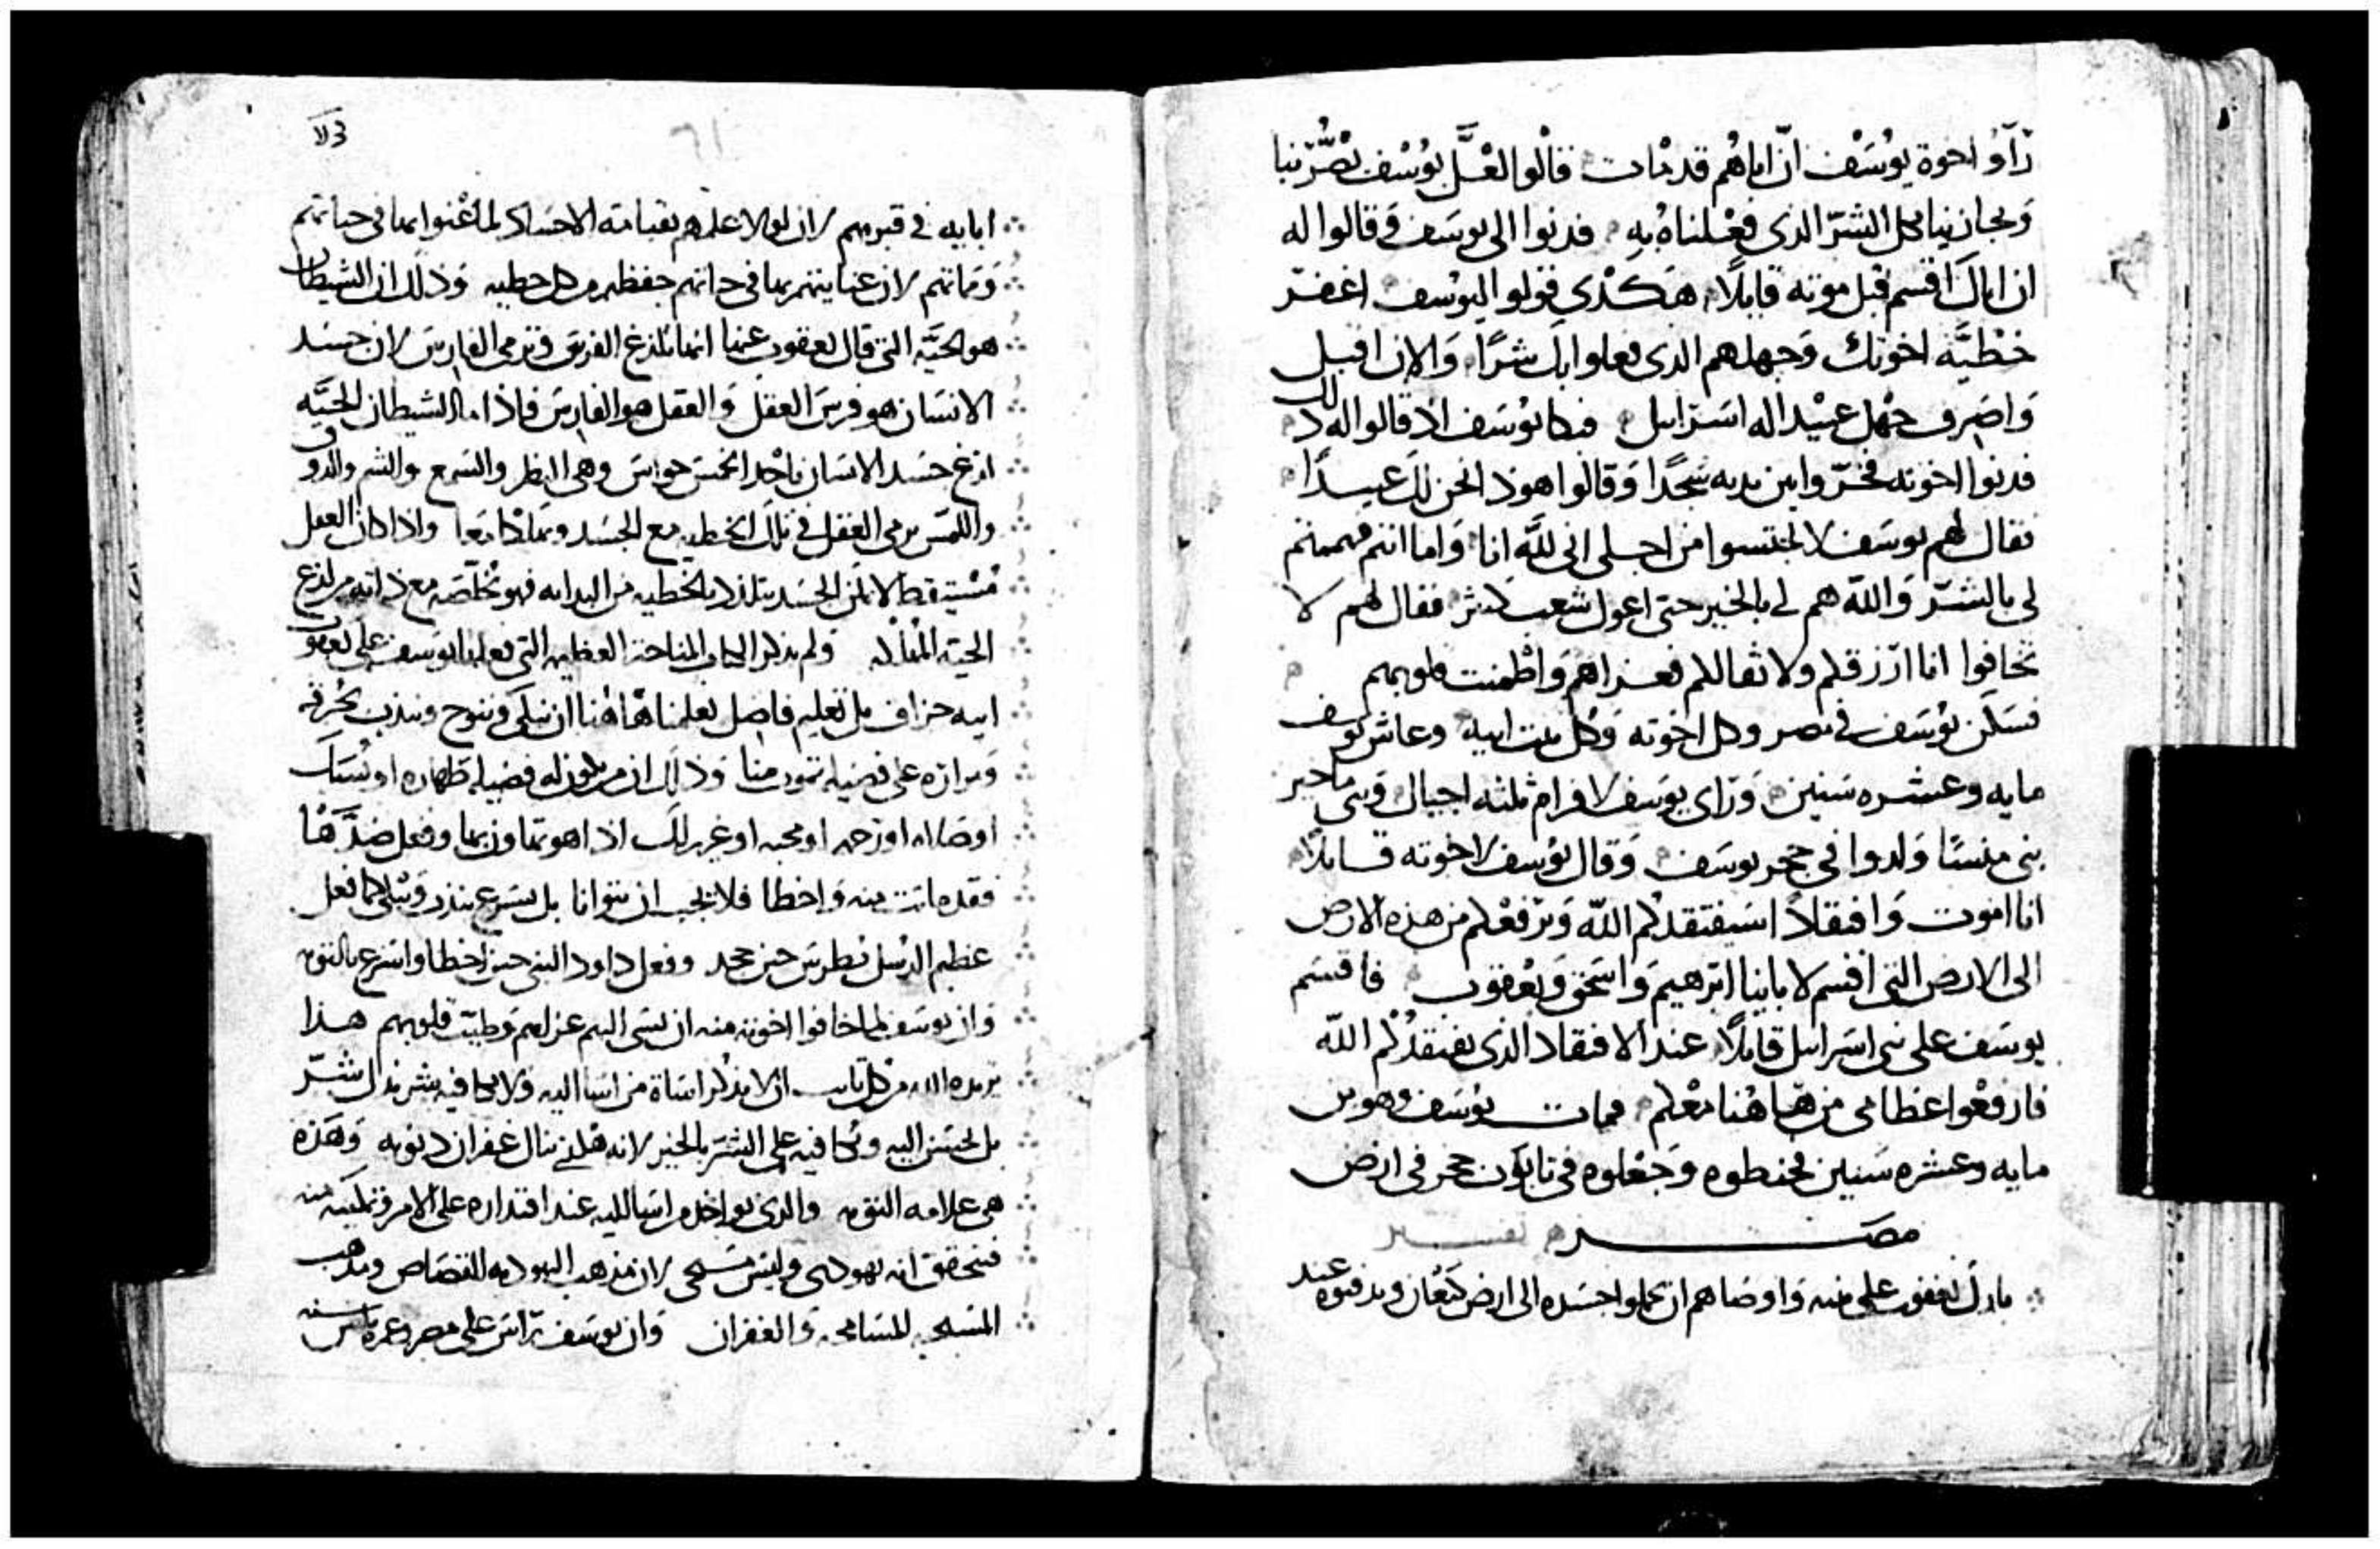 رآوا اخوة يوسف ان اباهم قد مات قالوا لعل يوسف يضر بنا
ويجازينا بكل الشر الذي فعلناه به فدنوا الى يوسف وقالوا له
ان اباك اقسم قبل موته قايلا هكذى قولوا ليوسف اغفر
خطية اخوتك وجهلهم الذى فعلوا بك شرا والان اقبل
واصرف جهل عبيد اله اسراييل فبكا يوسف اذ قالوا له ذلك
فدنوا اخوته فخروا بين يديه سجدا وقالوا هوذا نحن لك عبيدا
فقال لهم يوسف لا تحتسبوا من اجلى انى لله انا واما انتم فهممتم
لى بالشر والله هم لى بالخير حتى اعول شعب كثير فقال لهم لا
تخافوا انا ارزقكم ولا ثقالكم فعزاهم واطمنت قلوبهم
فسكن يوسف فى مصر وكل اخوته وكل بيت ابيه وعاش يوسف
مايه وعشره سنين وراى يوسف لافرام ثلثه اجيال وبنى ماخير
بنى منسا ولدوا في حجر يوسف وقال يوسف لاخوته قايلا
انا اموت وافتقادا سيفتقدكم الله ويرفعكم من هذه الارض
الى الارض التى اقسم لاباينا ابرهيم واسحق ويعقوب فاقسم
يوسف على بنى اسراييل قايلا عند الافتقاد الذى يفتقدكم الله
فارفعوا عظامى من هاهنا معكم فمات يوسف وهو بن
مايه وعشره سنين فحنطوه وجعلوه فى تابوت حجر فى ارض
مصر تفسير
بارك يعقوب على بنيه واوصاهم ان يحملوا جسده الى ارض كنعان ويدفنوه عند
3لا
ابايه فى قبرهم لان لولا علمهم بقيامة الاجساد لما اعتنوا بها فى حياتهم
ومماتهم لان عنايتهم بها فى حياتهم حفظهم من كل خطيه وذلك ان الشيطان
هو الحيه التى قال يعقوب عنها انها تلدغ الفرس وترمى الفارس لان جسد
الانسان هو فرس العقل والعقل هو الفارس فاذا ما الشيطان الحيه
لدغ جسد الانسان باحد الخمس حواس وهى النظر والسمع والشم والدوق
واللمس يرمى العقل فى تلك الخطيه مع الجسد ويهلكا معا واذا كان العقل
مستيقظ لا يمكن الجسد يتلدد بالخطيه من البدايه فهو يخلصه مع ذاته من لدغ
الحيه القتاله ولم يذكر الكتاب المناحه العظيمه التى فعلها يوسف على يعقوب
ابيه جزاف بل تعليم فاضل يعلمنا هاهنا ان نبكى وننوح ونندب بحرقه
ومراره على فضيله تموت منا وذلك ان من يكون له فضيله طهاره او نسك
او صلاه او رحمه او محبه او غير ذلك اذا هو تهاون بها وفعل ضدها
فقد ماتت منه واخطا فلا يجب ان يتوانا بل يسرع يندب ويبكى كما فعل
عظيم الرسل بطرس حين جحد وفعل داود النبى حين اخطا واسرع بالتوبه
وان يوسف لما خافوا اخوته منه ان يسى اليهم عزاهم وطيب قلوبهم هذا
يريده الله من كل تايب ان لا يذكر اساة من اسا اليه ولا يكافيه بشر بدل شر
بل يحسن اليه ويكافيه على الشر بالخير لانه هكذى ينال غفران دنوبه وهذه
هى علامه التوبه والذى يواخذ من اسا اليه عند اقتداره على الامر وتمكينه منه
فيتحقق انه يهودى وليس مسيحى لان مذهب اليهوديه القصاص ومدهب
المسيحيه المسامحه والغفران وان يوسف تراس على مصر وعمره ثلثين سنه